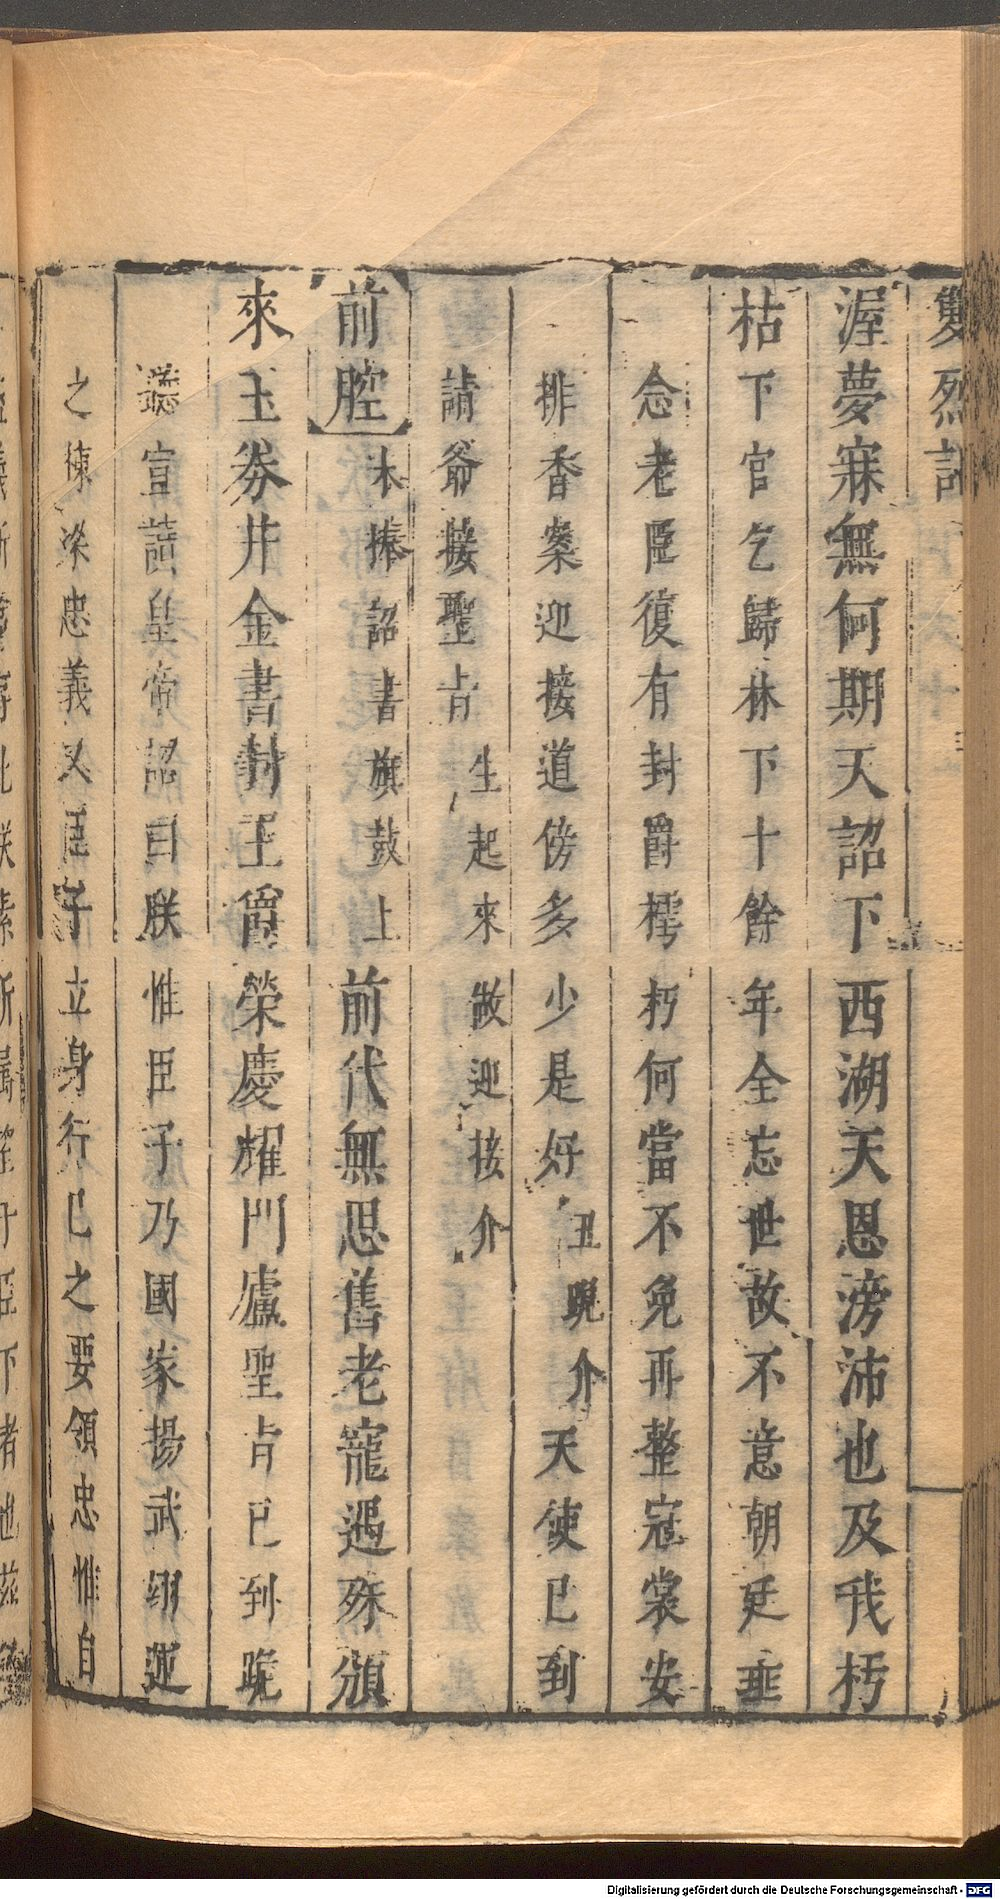 雙烈記
渥夢寐無何期天詔下西湖天恩滂沛也及我朽
枯下官乞歸林下十餘年全忘世故不意朝廷垂
念老臣復有封爵樗朽何當不免再整冠裳安
排香案迎接道傍多少是好丑跪介天使已到
請爺接聖旨生起來做迎接介
前腔末捧詔書旗鼓上前代無思舊老寵遇殊頒
來玉券并金書封王爵榮慶耀門廬聖旨已到跪
聽宣讀皇帝詔曰朕惟臣子乃國家揚武翊運
之棟梁忠義又臣子立身行己之要領忠惟自
Digitalisierung gefördert durch die Deutsche Forschungsgemeinschaft - DFG